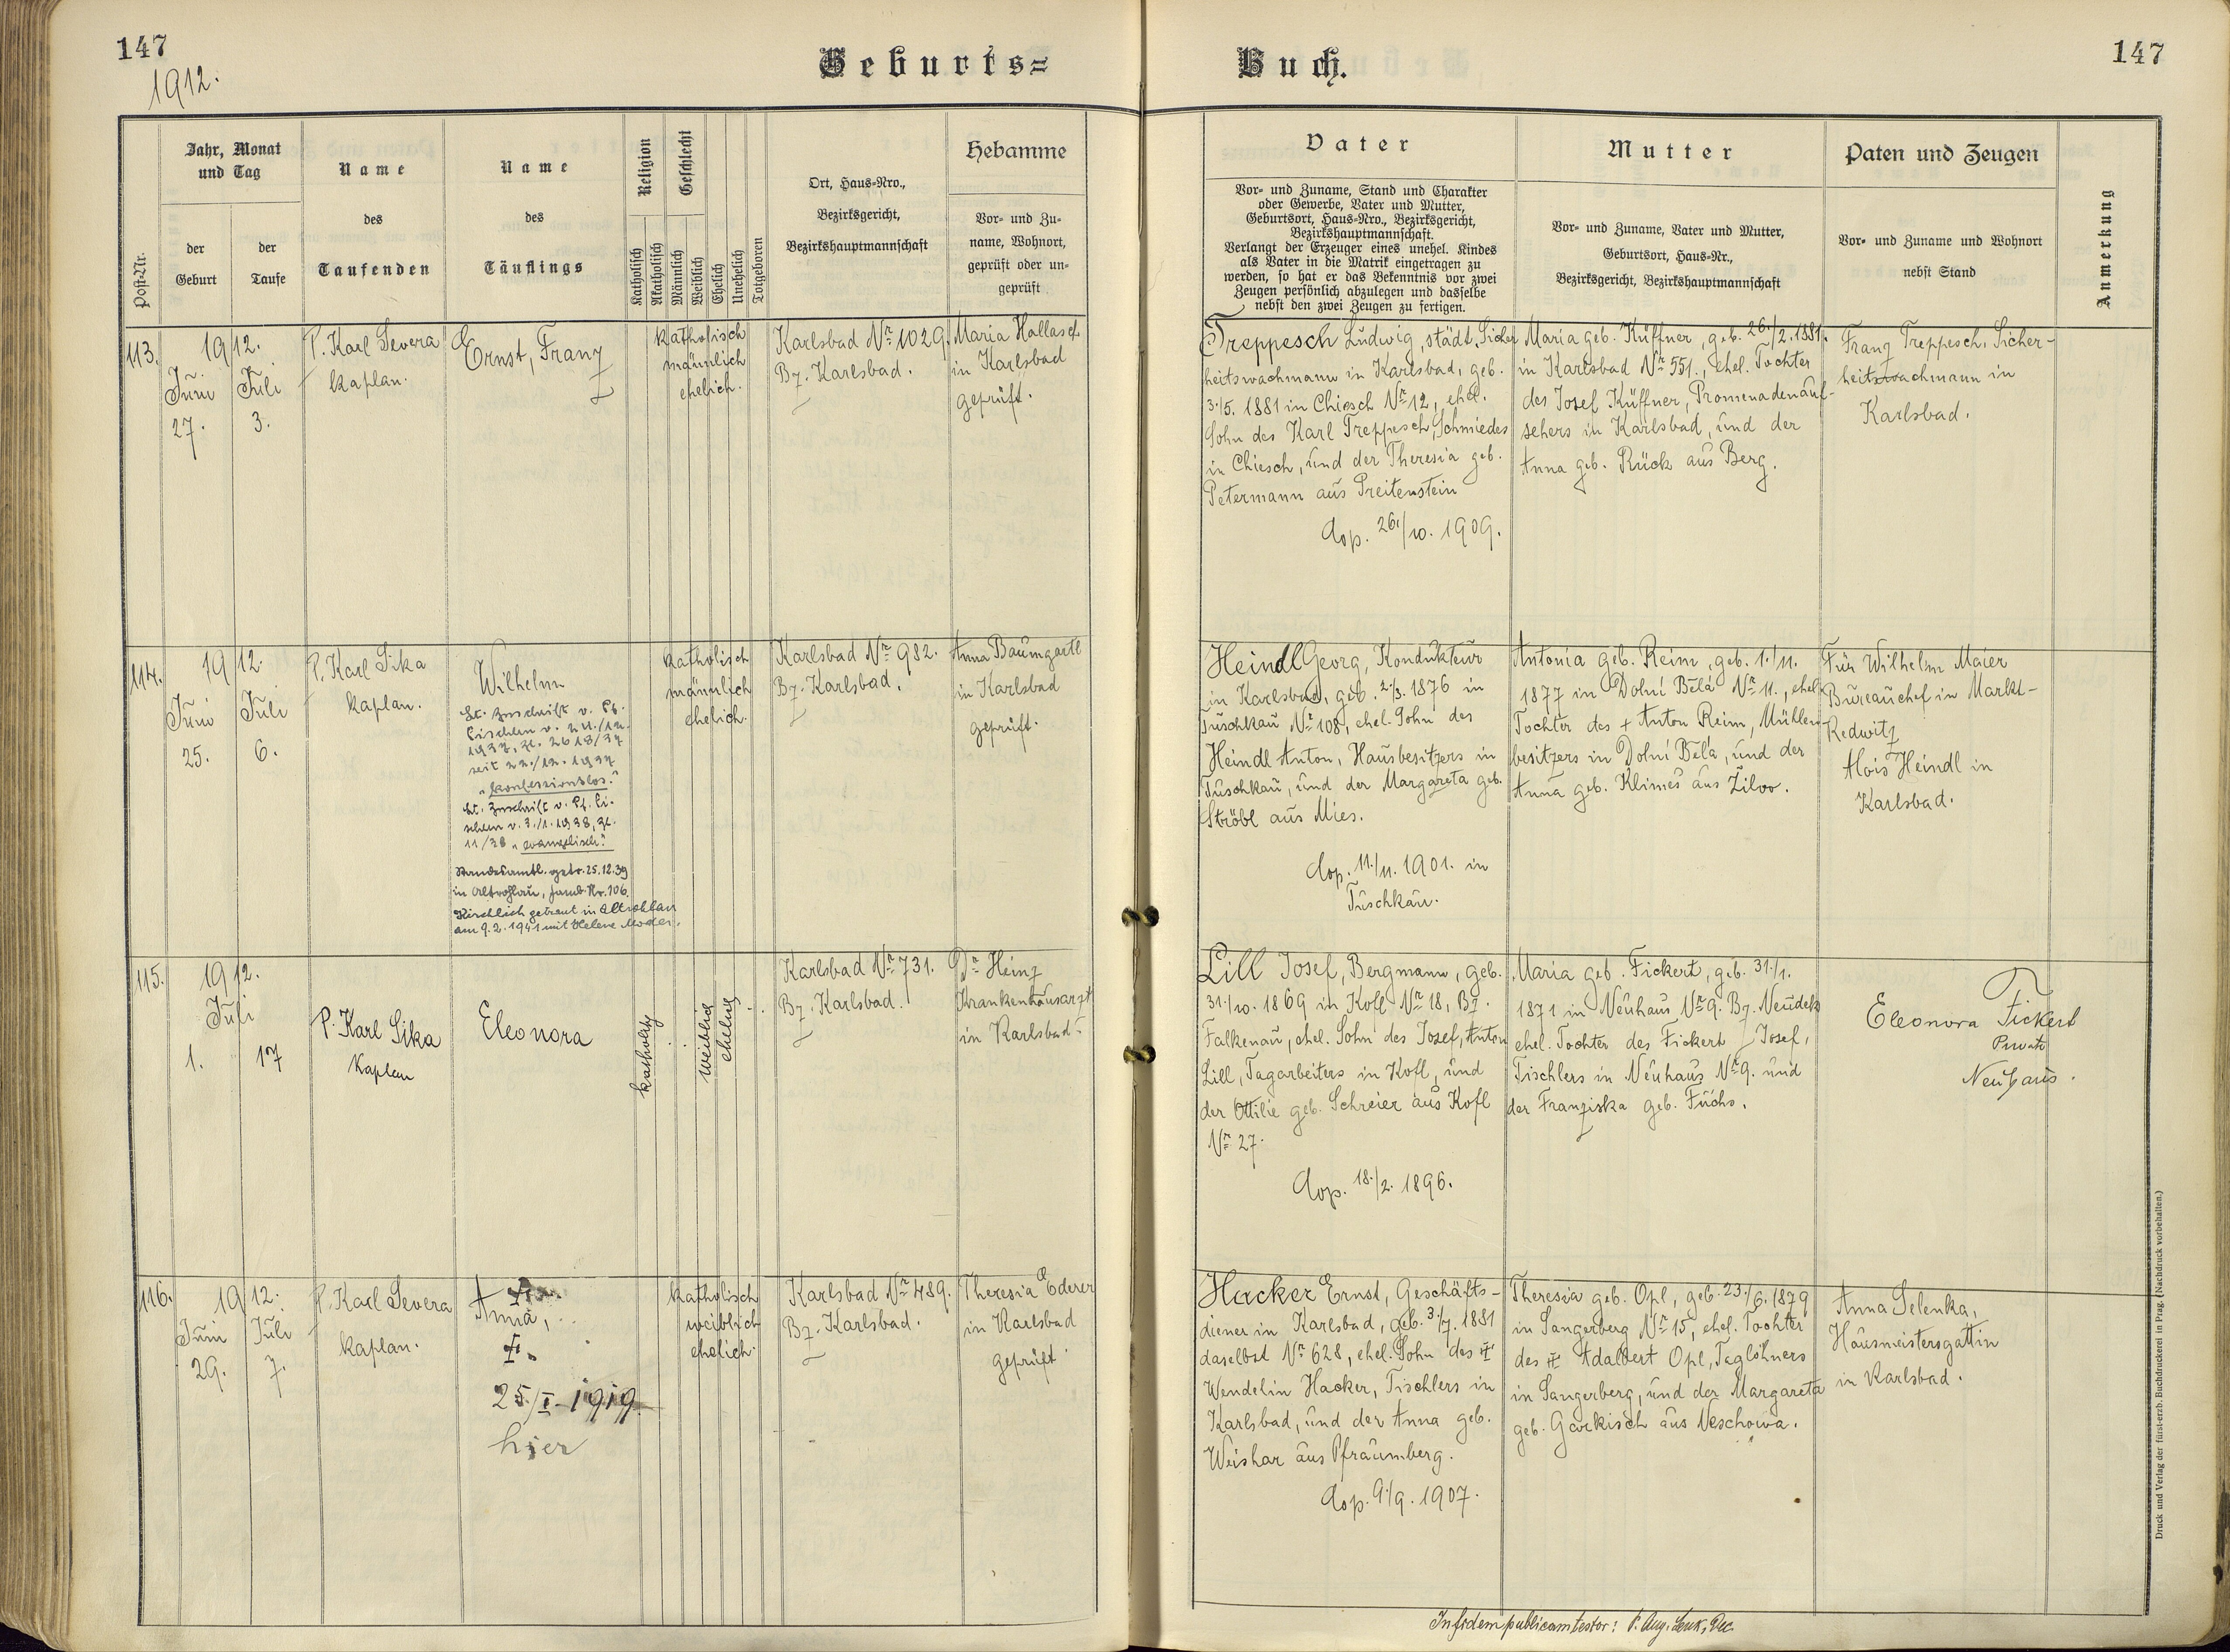 147
1912.
Geburts=
Buch.
147
Post-Nr.
Jahr, Monat
und Tag
der
Geburt
der
Taufe
Name
des
Taufenden
Name
des
Täuflings
Religion
Katholisch
Akatholisch
Geschlecht
Männlich
Weiblich
Ehelich
Unehelich
Totgeboren
Ort, Haus-Nro.,
Bezirksgericht,
Bezirkshauptmannschaft
Hebamme
Vor- und Zu-
name, Wohnort,
geprüft oder un-
geprüft
Vater
Vor- und Zuname, Stand und Charakter
oder Gewerbe, Vater und Mutter,
Geburtsort, Haus-Nro., Bezirksgericht,
Bezirkshauptmannschaft.
Verlangt der Erzeuger eines unehel. Kindes
als Vater in die Matrik eingetragen zu
werden, so hat er das Bekenntnis vor zwei
Zeugen persönlich abzulegen und dasselbe
nebst den zwei Zeugen zu fertigen.
Mutter
Vor- und Zuname, Vater und Mutter,
Geburtsort, Haus-Nr.,
Bezirksgericht, Bezirkshauptmannschaft
Paten und Zeugen
Vor- und Zuname und Wohnort
nebst Stand
Anmerkung
113.
1912.
Juni
27.
Juli
3.
P. Karl Severa
Kaplan.
Ernst, Franz
katholisch
männlich
ehelich.
Karlsbad Nr. 1029.
Bz. Karlsbad.
Maria Hallasch
in Karlsbad
geprüft.
Treppesch Ludwig, städt. Sicher
heitswachmann in Karlsbad, geb.
3./5. 1881 in Chiesch Nr. 12, ehel.
Sohn des Karl Treppesch, Schmiedes
in Chiesch, und der Theresia geb.
Petermann aus Preitenstein
Cop. 26./10. 1909.
Maria geb. Küffner, geb. 26./2. 1881.
in Karlsbad Nr. 551., ehel. Tochter
des Josef Küffner, Promenadenauf-
sehers in Karlsbad, und der
Anna geb. Rück aus Berg.
Franz Treppesch, Sicher-
heitswachmann in
Karlsbad.
114.
1912.
Juni
25.
Juli
6.
P. Karl Sika
Kaplan.
Wilhelm
Lt. Zuschrift v. Pf.
Fischern v. 24./12.
1937, Zl. 2618/37
seit 22./12. 1937
"konfessionslos."
Lt. Zuschrift v. Pf. Fi-
schern v. 3./1. 1938, Zl.
11/38 "evangelisch."
Standesamtl. getr. 25.12.39
in Altrohlau, Famb. Nr. 106.
Kirchlich getraut in Altrohlau
am 9.2.1941 mit Helene Moder.
katholisch
männlich
ehelich.
Karlsbad Nr. 982.
Bz. Karlsbad.
Anna Baumgartl
in Karlsbad
geprüft.
Heindl Georg, Kondukteur
in Karlsbad, geb. 2./3. 1876 in
Tuschkau Nr. 108, ehel. Sohn des
Heindl Anton, Hausbesitzers in
Tuschkau, und der Margareta geb.
Ströbl aus Mies.
Cop. 11./11. 1901. in
Tuschkau.
Antonia geb. Reim, geb. 1./11.
1877 in Dolní Bělá Nr. 11., ehel.
Tochter des + Anton Reim, Mühlen-
besitzers in Dolní Bělá, und der
Anna geb. Klimeš aus Žilov.
Für Wilhelm Maier
Bureauchef in Markt-
Redwitz
Alois Heindl in
Karlsbad.
115.
1912.
Juli
1.
17
P. Karl Sika
Kaplan
Eleonora
katholisch
weiblich
ehelich
Karlsbad Nr. 731.
Bz. Karlsbad.
Dr. Heinz
Krankenhausarzt
in Karlsbad.
Lill Josef, Bergmann, geb.
31./10. 1869 in Kofl Nr. 18, Bz.
Falkenau, ehel. Sohn des Josef, Anton
Lill, Tagarbeiters in Kofl, und
der Ottilie geb. Schreier aus Kofl
Nr. 27.
Cop. 18./2. 1896.
Maria geb. Fickert, geb. 31./1.
1871 in Neuhaus Nr. 9. Bz. Neudek
ehel. Tochter des Fickert Josef,
Tischlers in Neuhaus Nr. 9. und
der Franziska geb. Fuchs.
Eleonora Fickert
Private
Neuhaus.
116.
1912.
Juni
29.
Juli
7.
P. Karl Severa
Kaplan.
Anna,
25./I. 1919.
hier
katholisch
weiblich
ehelich.
Karlsbad Nr. 489.
Bz. Karlsbad.
Theresia Ederer
in Karlsbad
geprüft.
Hacker Ernst, Geschäfts-
diener in Karlsbad, geb. 3./7. 1881
daselbst Nr. 628, ehel. Sohn des
Wendelin Hacker, Tischlers in
Karlsbad, und der Anna geb.
Weishar aus Pfraumberg.
Cop. 9./9. 1907.
Theresia geb. Opl, geb. 23./6. 1879
in Sangerberg Nr. 15, ehel. Tochter
des Adalbert Opl, Taglöhners
in Sangerberg, und der Margareta
geb. Garkisch aus Neschowa.
Anna Selenka,
Hausmeistersgattin
in Karlsbad.
In fidem publicam testor: P. Aug. Lenk, Dec.
Druck und Verlag der fürst-erzb. Buchdruckerei in Prag. (Nachdruck vorbehalten.)